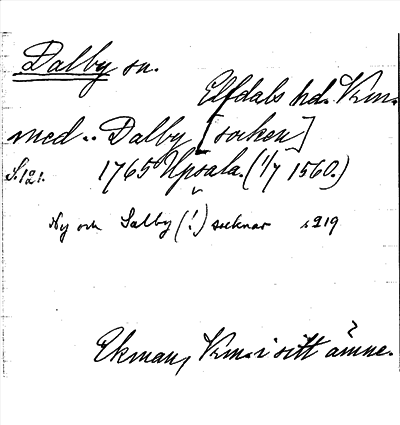 Dalby sn.
Elfdals hd. Vrm.
med .. Dalby [socken]
S. 121. 1765 Upsala. (1/7 1560.)
Ny och Dalby (!) socknar s 219
Ekman, Vrm. i sitt ämne.